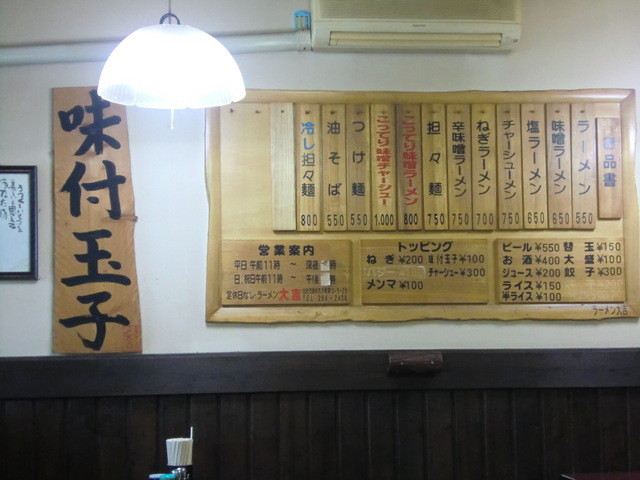 味付玉子
品書
ラーメン 550
味噌ラーメン 650
塩ラーメン 650
チャーシューメン 750
ねぎラーメン 700
辛味噌ラーメン 750
担々麺 750
こってり味噌ラーメン 800
こってり味噌チャーシュー 1,000
つけ麺 550
油そば 550
冷し担々麺 800
営業案内
平日 午前11時 ～ 深夜 時
日、祝日午前11時 ～ 午後 時
定休日なし・ラーメン大吉
トッピング
ねぎ ¥200 味付玉子 ¥100
チャーシュー ¥300
メンマ ¥100
ビール ¥550 替玉 ¥150
お酒 ¥400 大盛 ¥100
ジュース ¥200 餃子 ¥300
ライス ¥150
半ライス ¥100
ラーメン大吉